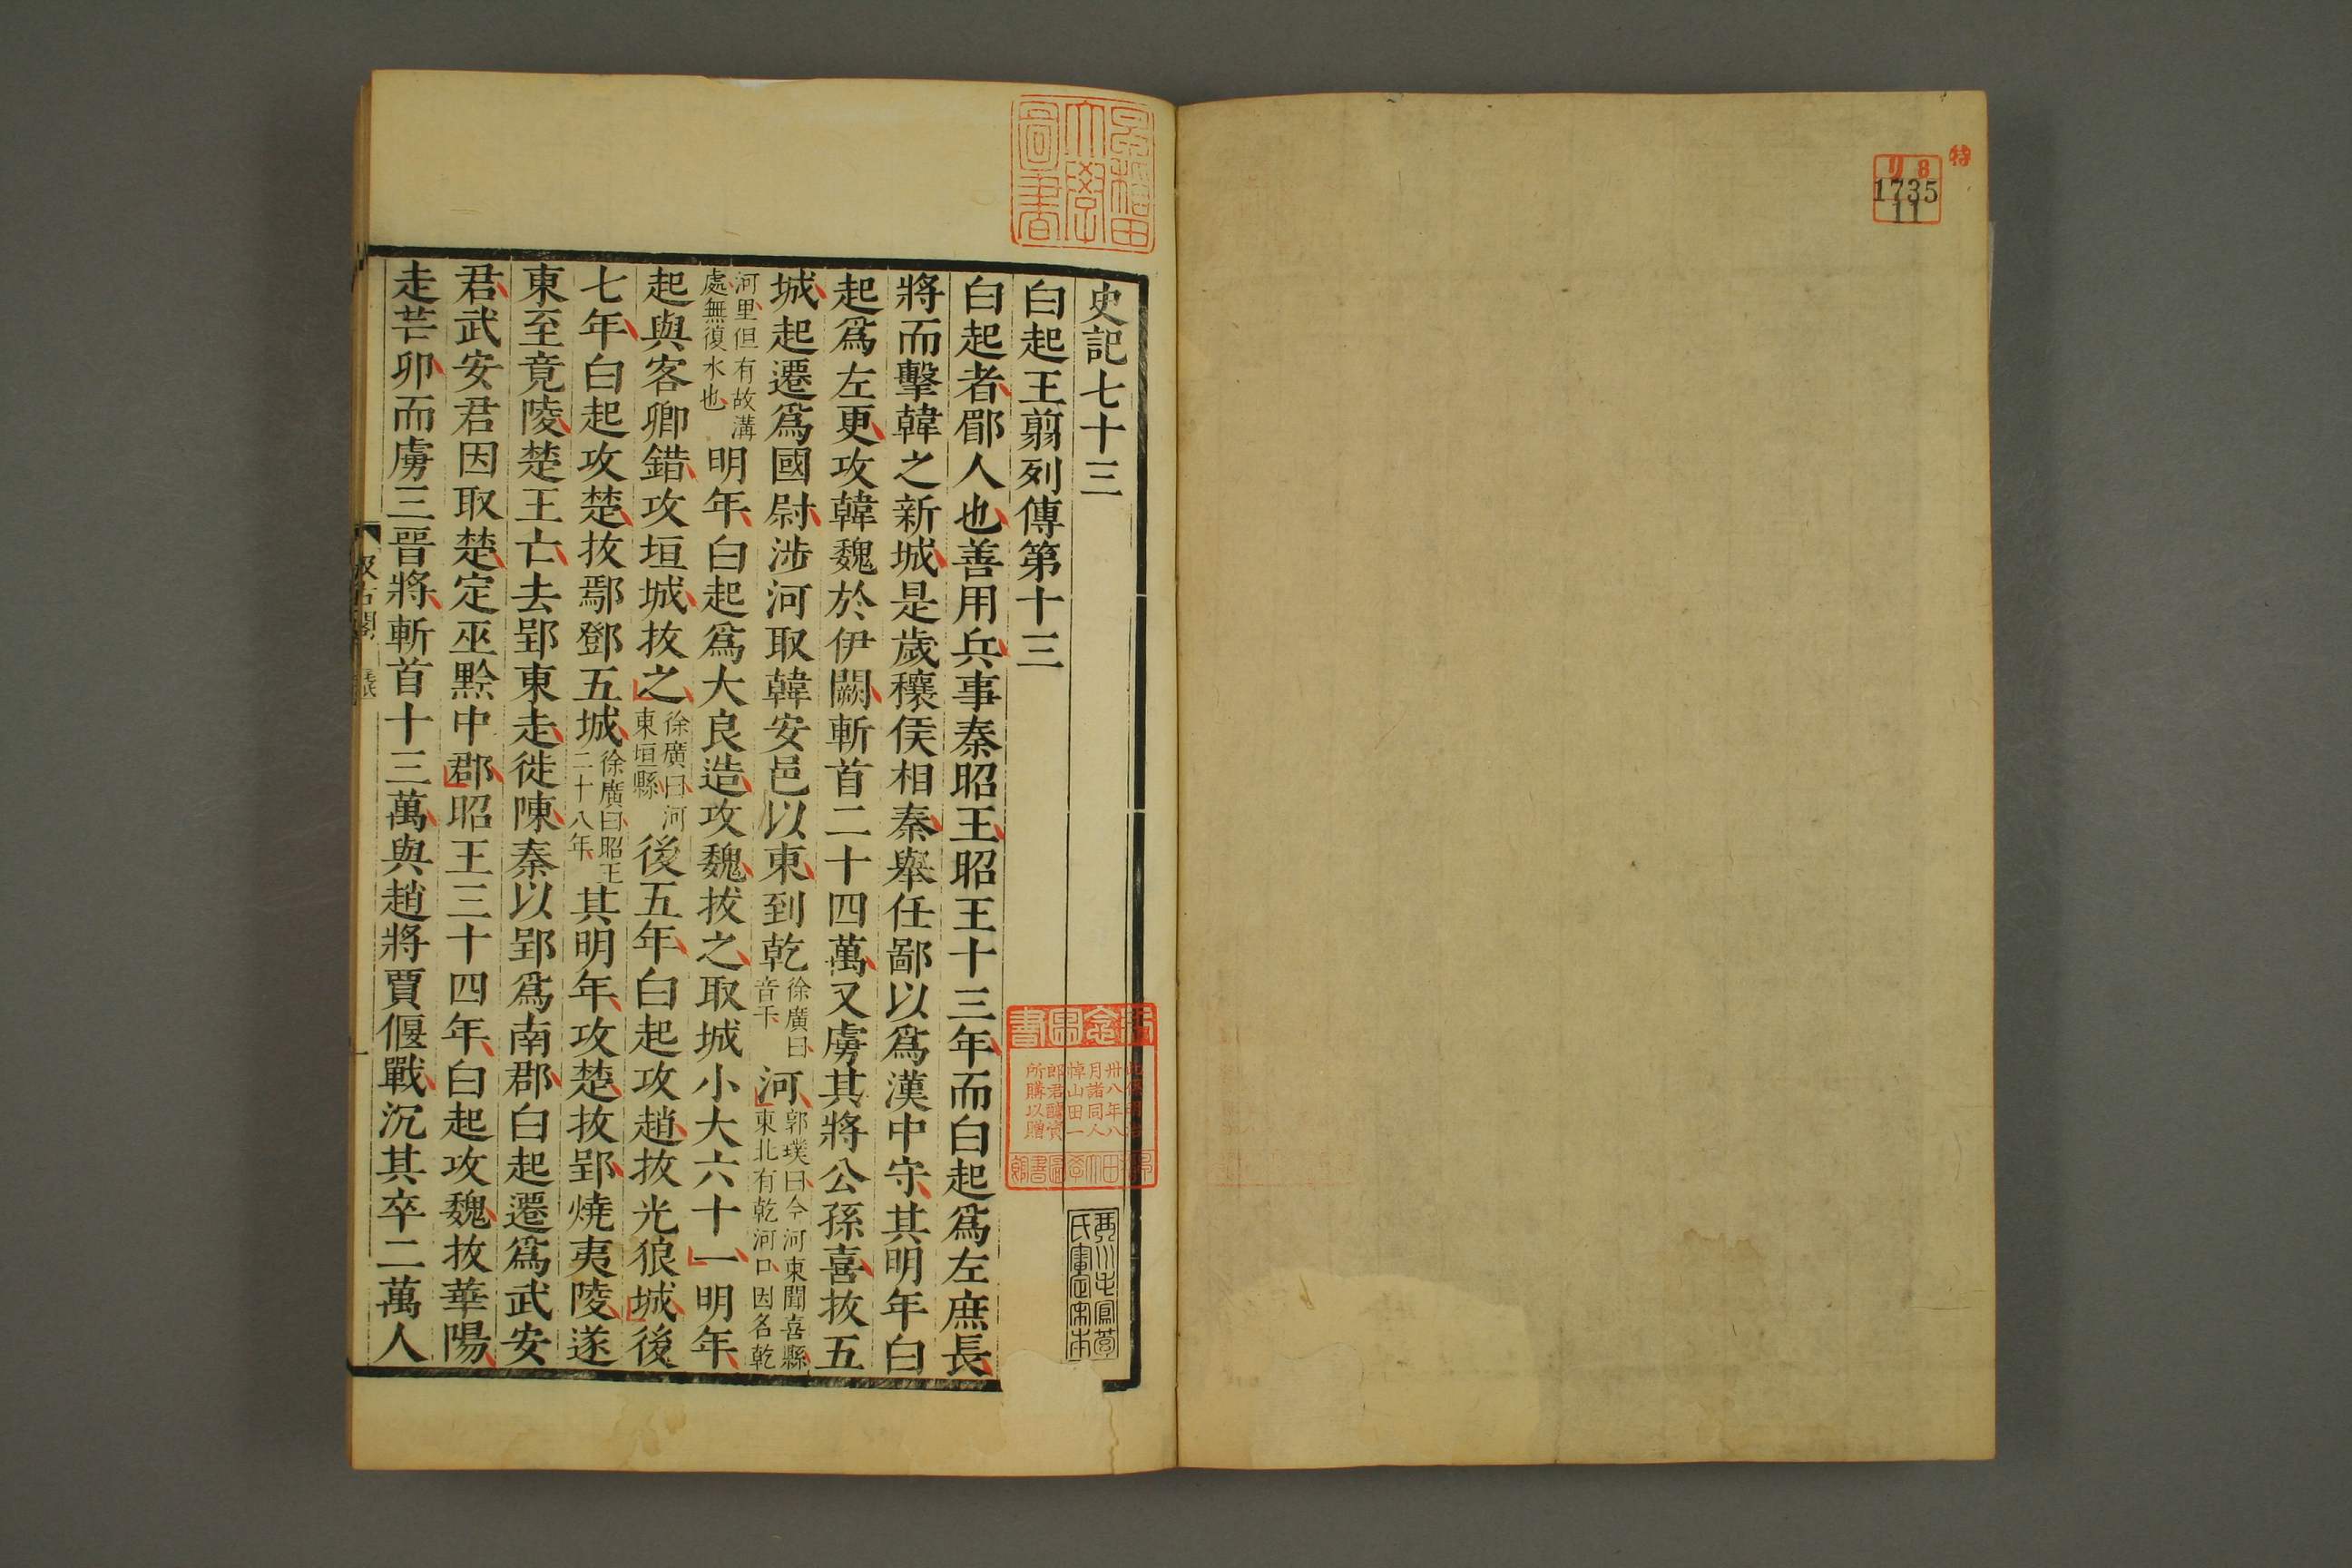 特
リ8
1735
11
早稻田大學圖書
史記七十三
白起王翦列傳第十三
白起者郿人也善用兵事秦昭王昭王十三年而白起爲左庶長
將而擊韓之新城是歲穰侯相秦舉任鄙以爲漢中守其明年白
起爲左更攻韓魏於伊闕斬首二十四萬又虜其將公孫喜拔五
城起遷爲國尉涉河取韓安邑以東到乾徐廣曰音干河郭璞曰今河東聞喜縣東北有乾河口因名乾
河里但有故溝處無復水也明年白起爲大良造攻魏拔之取城小大六十一明年
起與客卿錯攻垣城拔之徐廣曰河東垣縣後五年白起攻趙拔光狼城後
七年白起攻楚拔鄢鄧五城徐廣曰昭王二十八年其明年攻楚拔郢燒夷陵遂
東至竟陵楚王亡去郢東走徙陳秦以郢爲南郡白起遷爲武安
君武安君因取楚定巫黔中郡昭王三十四年白起攻魏拔華陽
走芒卯而虜三晉將斬首十三萬與趙將賈偃戰沉其卒二萬人
卅八年八
月諸同人
悼山田一
郎君醵資
所購以贈